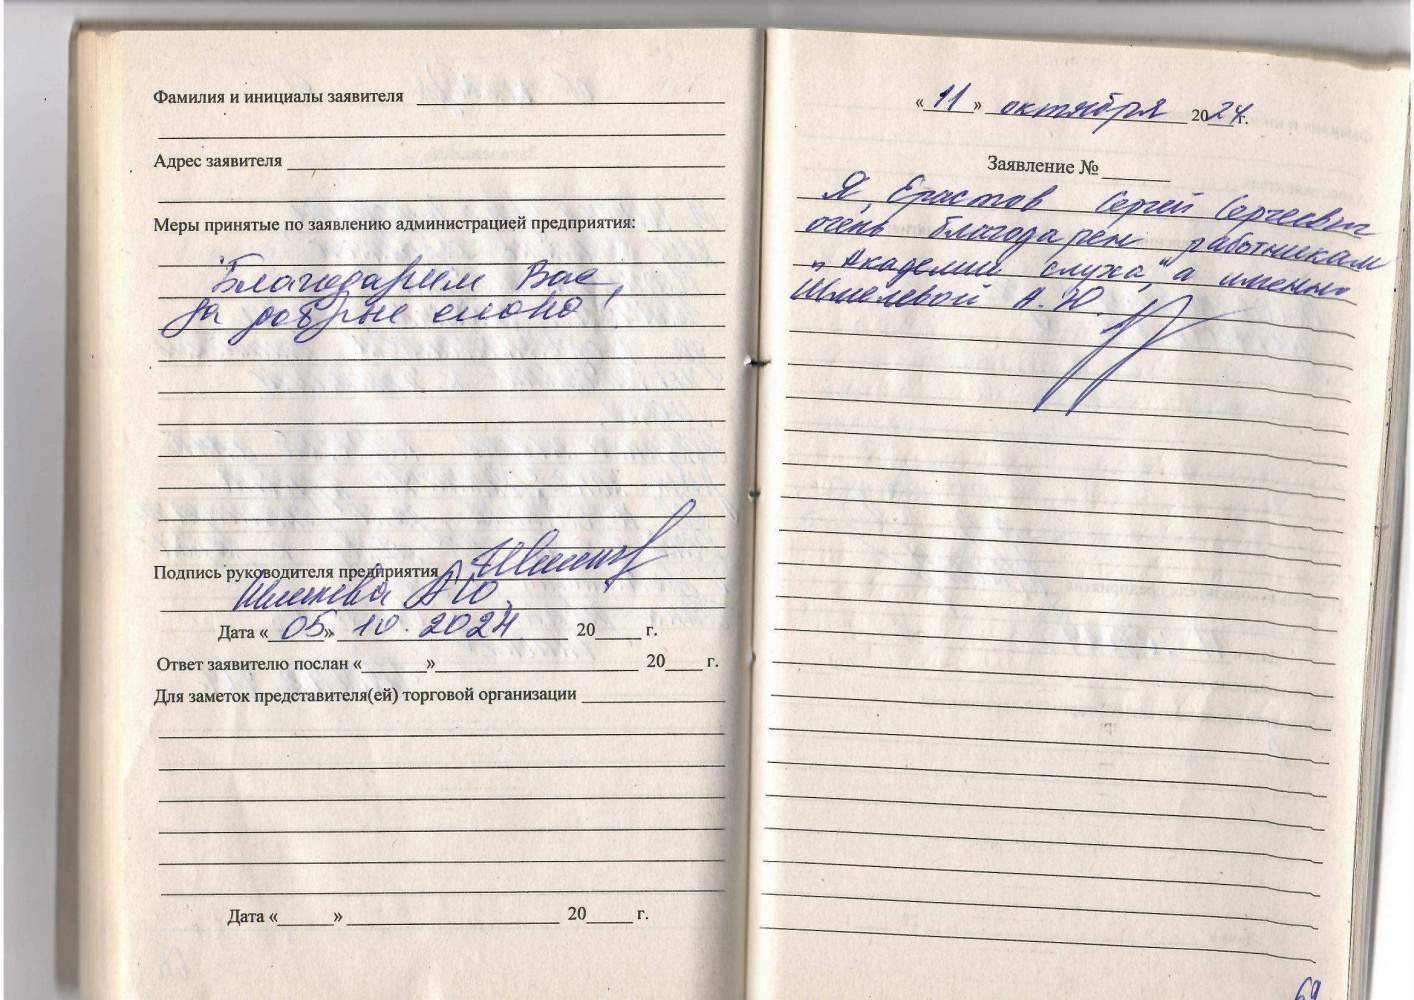 Фамилия и инициалы заявителя
Адрес заявителя
Меры принятые по заявлению администрацией предприятия:
Благодарим Вас
за добрые слова!
Подпись руководителя предприятия
Шмелева А.Ю.
Дата «05» 10.2024 20 г.
Ответ заявителю послан « » 20 г.
Для заметок представителя(ей) торговой организации
Дата « » 20 г.
«11» октября 2024 г.
Заявление №
Я, Ерастов Сергей Сергеевич
очень благодарен работникам
"Академии слуха," а именно
Шмелевой А.Ю.
69